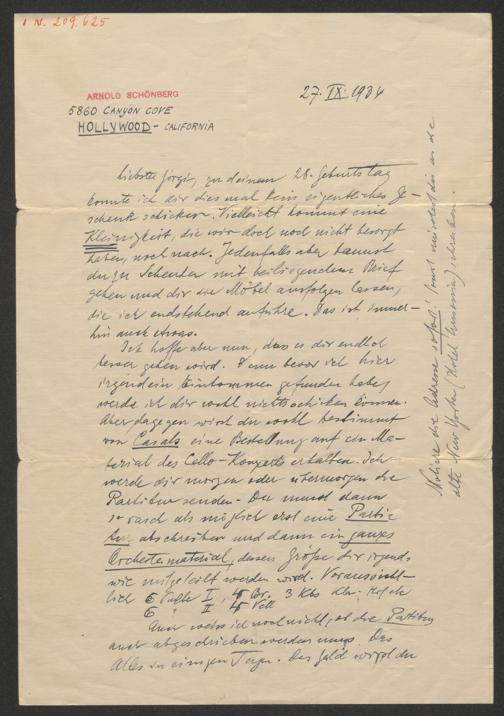 I.N. 209.625
ARNOLD SCHÖNBERG
5860 CANYON COVE
HOLLYWOOD - CALIFORNIA
27. IX. 1934
Liebster Görgi, zu deinem 28. Geburtstag
konnte ich dir diesmal kein eigentliches Ge-
schenk schicken. Vielleicht kommt eine
Kleinigkeit, die wir doch noch nicht besorgt
haben, noch nach. Jedenfalls aber kannst
du zu Schenker mit beiliegendem Brief
gehen und dir die Möbel ausfolgen lassen,
die ich endstehend anführe. Das ist immer-
hin auch etwas.
Ich hoffe aber nun, dass es dir endlich
besser gehen wird. Denn bevor ich hier
irgendein Einkommen gefunden habe,
werde ich dir wohl nichts schicken können.
Aber dagegen wirst du wohl bestimmt
von Casals eine Bestellung auf ein Ma-
terial des Cello-Konzerts erhalten. Ich
werde dir morgen oder übermorgen die
Partitur senden. Du musst dann
so rasch als möglich erst eine Partitur
abschreiben und dann ein ganzes
Orchestermaterial, dessen Größe dir irgend-
wie mitgeteilt werden wird. Voraussicht-
lich 6 Pulte I, 4 Br. 3 Kbs
6 " II 4 Vcll
Auch weiss ich noch nicht, ob die Partitur
auch abgeschrieben werden muss. Das
Alles in einigen Tagen. Das Geld wirst du
Notiere die Adresse sofort! Sonst wirst du an die
alte New York (Hotel Ansonia) schreiben.